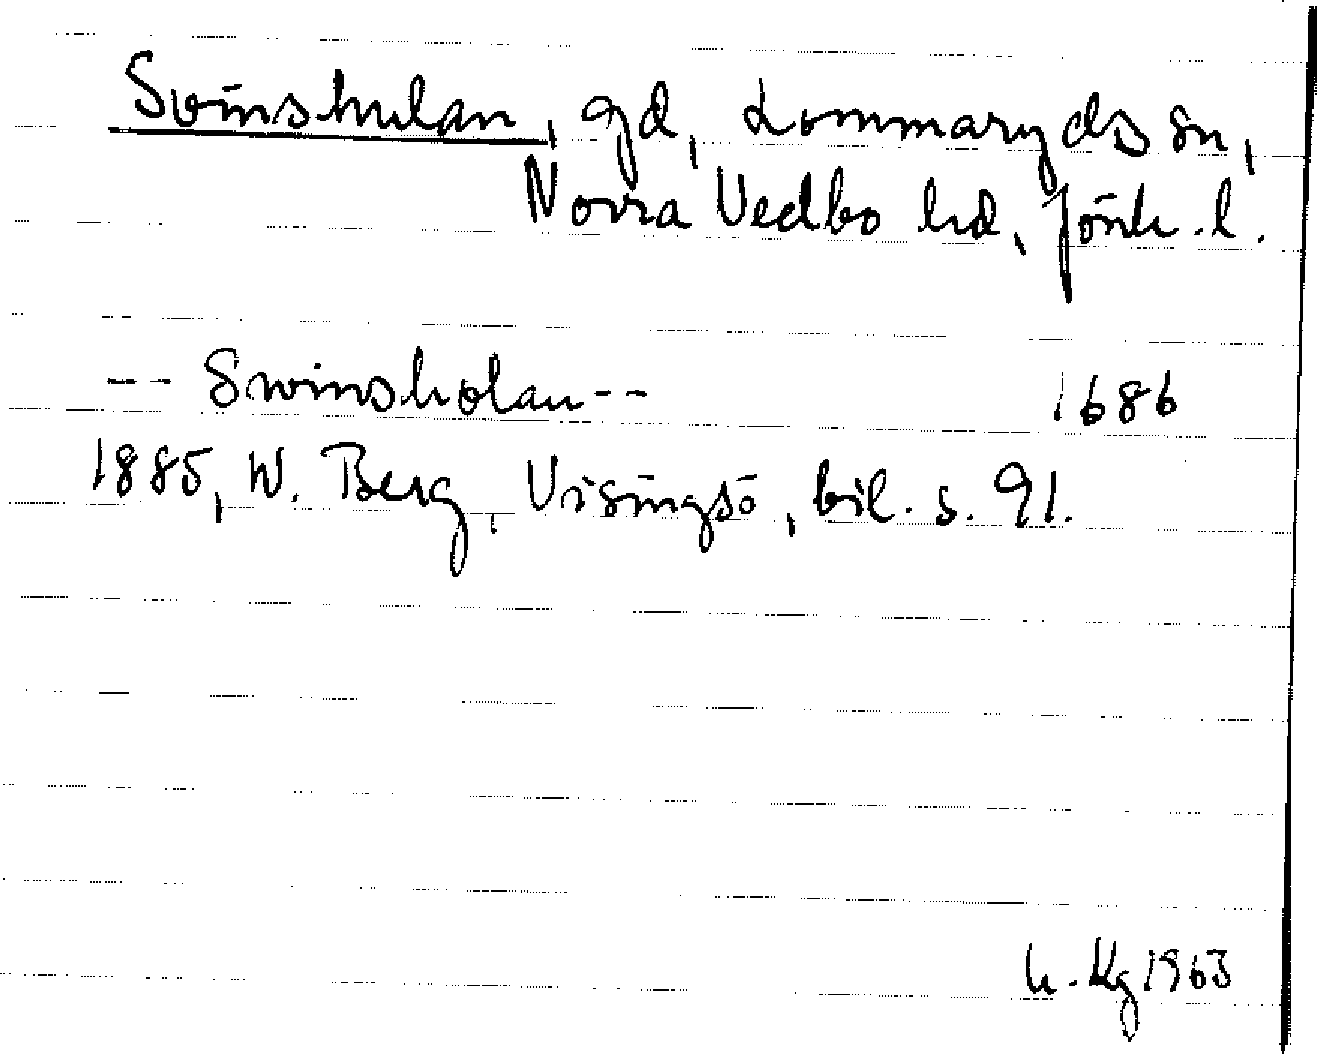 Svinshulan, gd, Lommaryds sn,
Norra Vedbo hd, Jönk. l.
-- Swinsholan -- 1686
1885, W. Berg, Visingsö, bil. s. 91.
h. Kg 1963